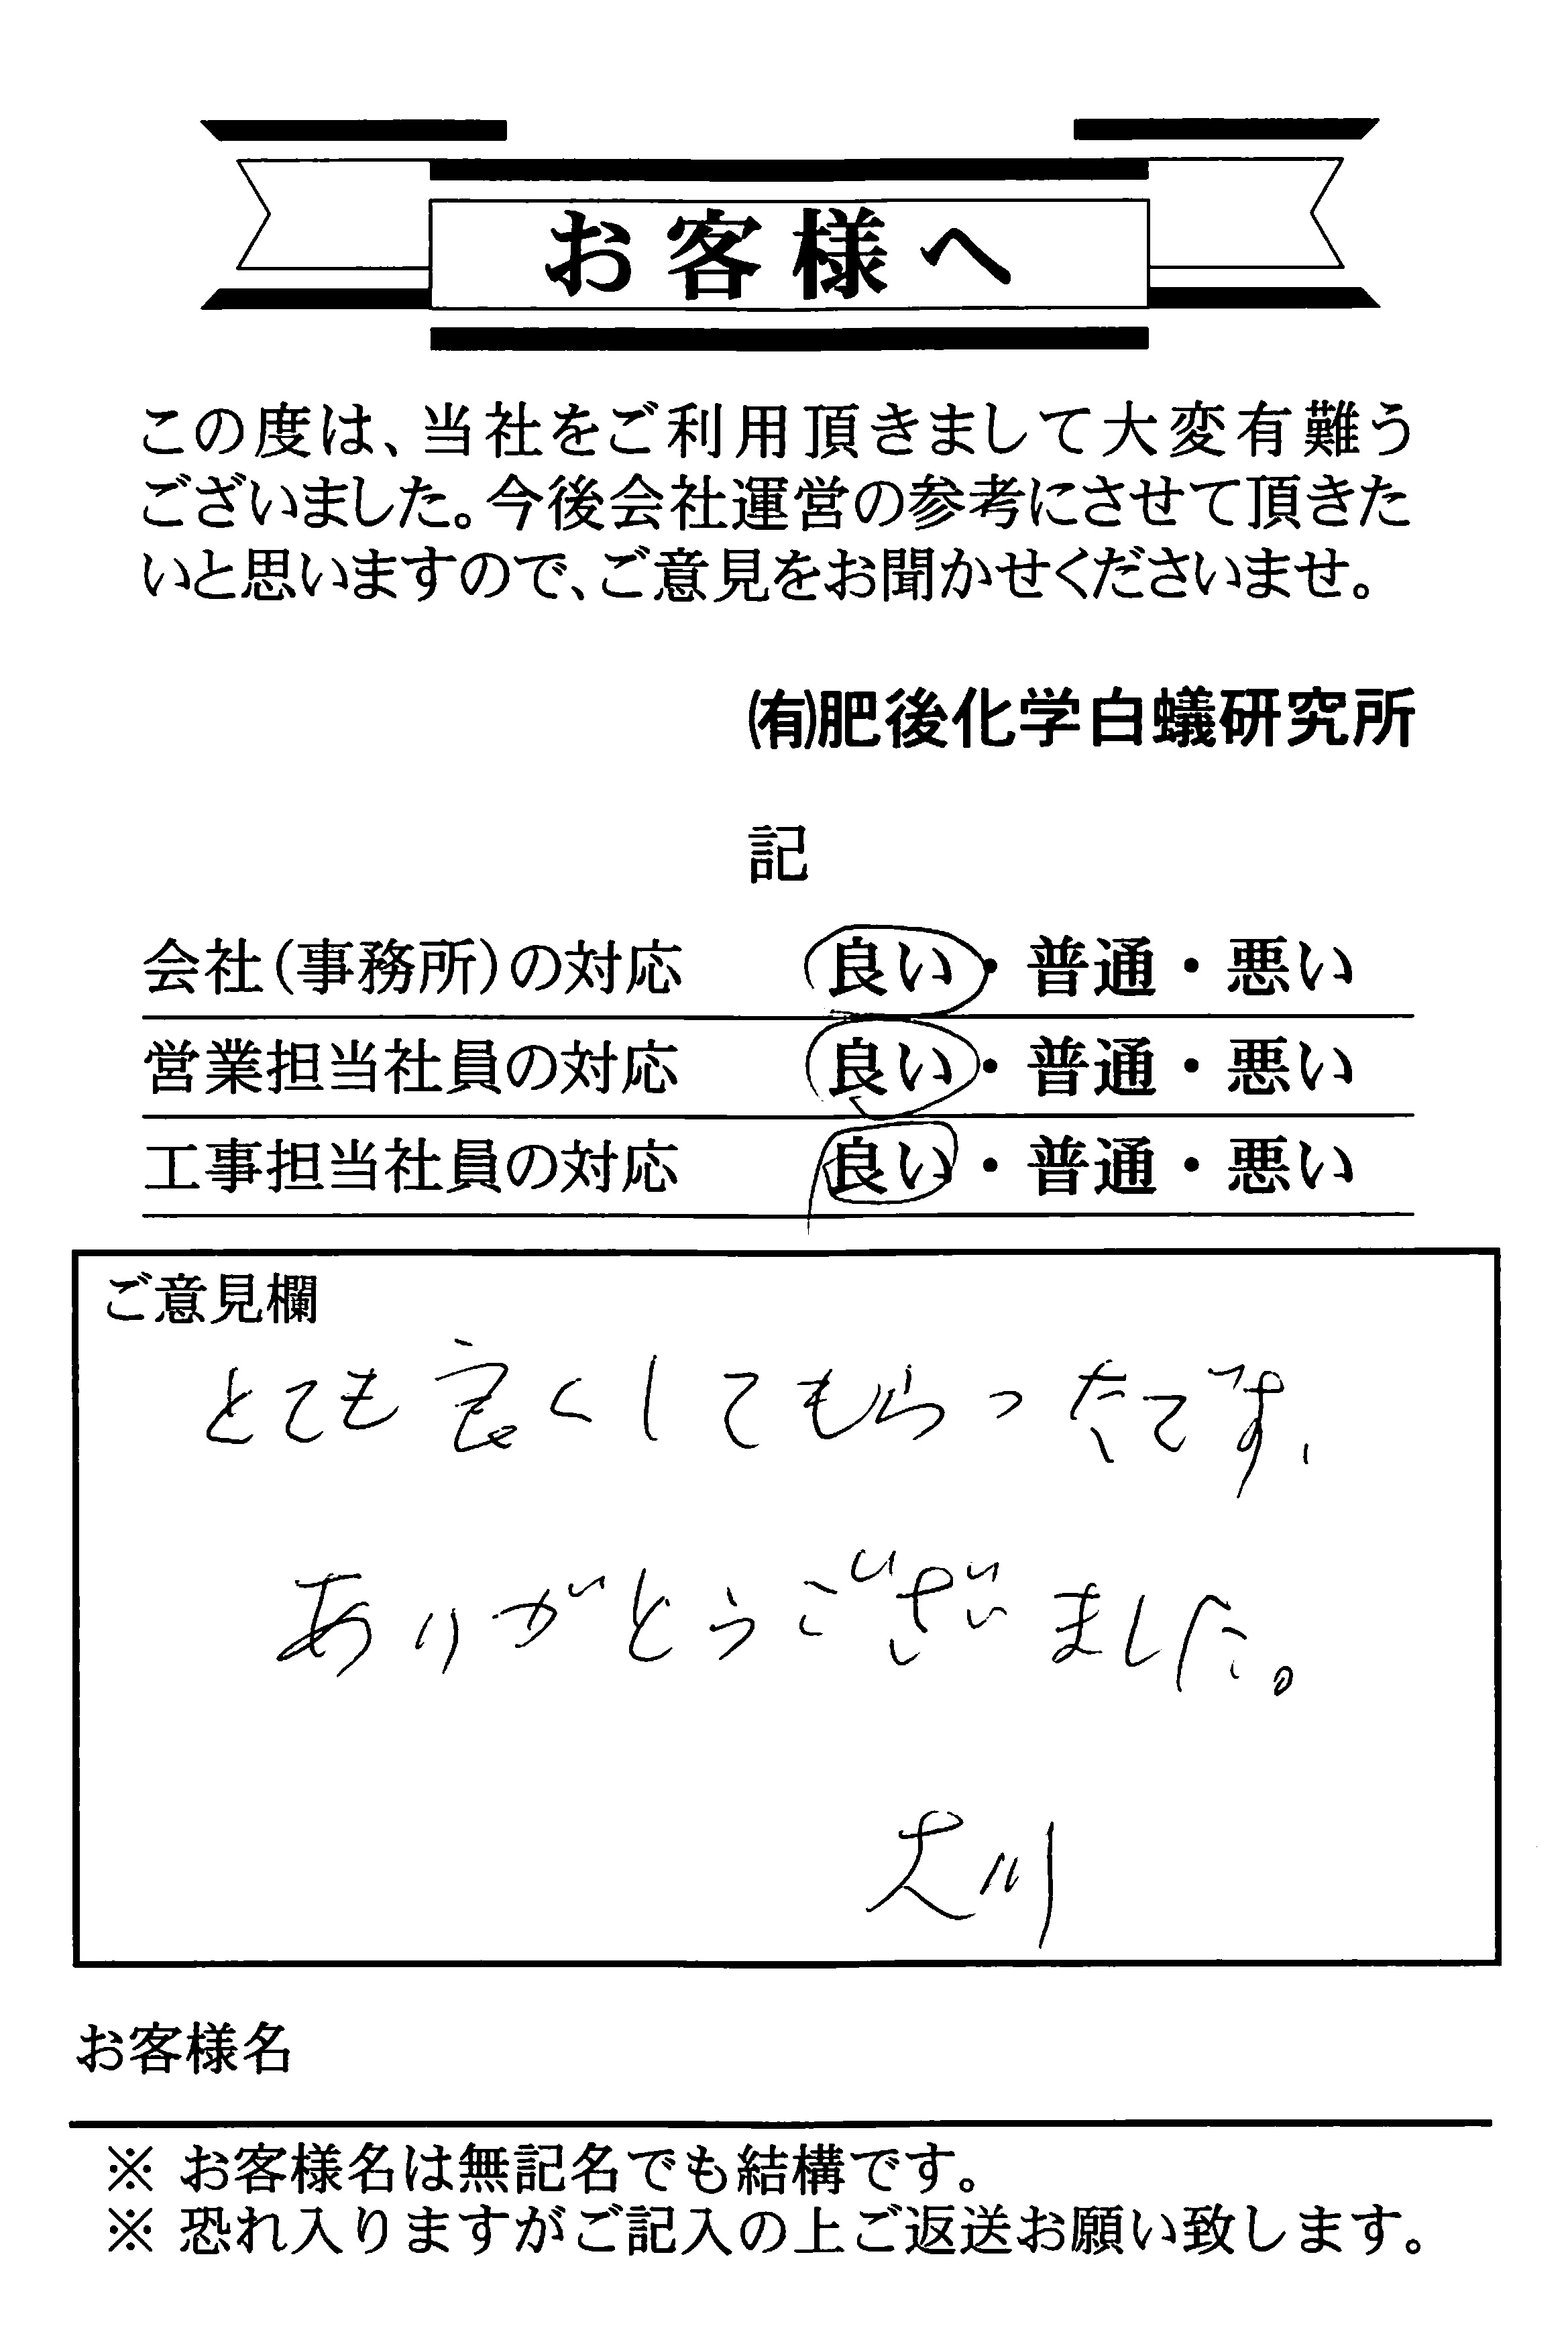 お客様へ
この度は、当社をご利用頂きまして大変有難う
ございました。今後会社運営の参考にさせて頂きた
いと思いますので、ご意見をお聞かせくださいませ。
㈲肥後化学白蟻研究所
記
会社(事務所)の対応 良い・普通・悪い
営業担当社員の対応 良い・普通・悪い
工事担当社員の対応 良い・普通・悪い
ご意見欄
とても良くしてもらったです、
ありがとうございました。
大川
お客様名
※ お客様名は無記名でも結構です。
※ 恐れ入りますがご記入の上ご返送お願い致します。